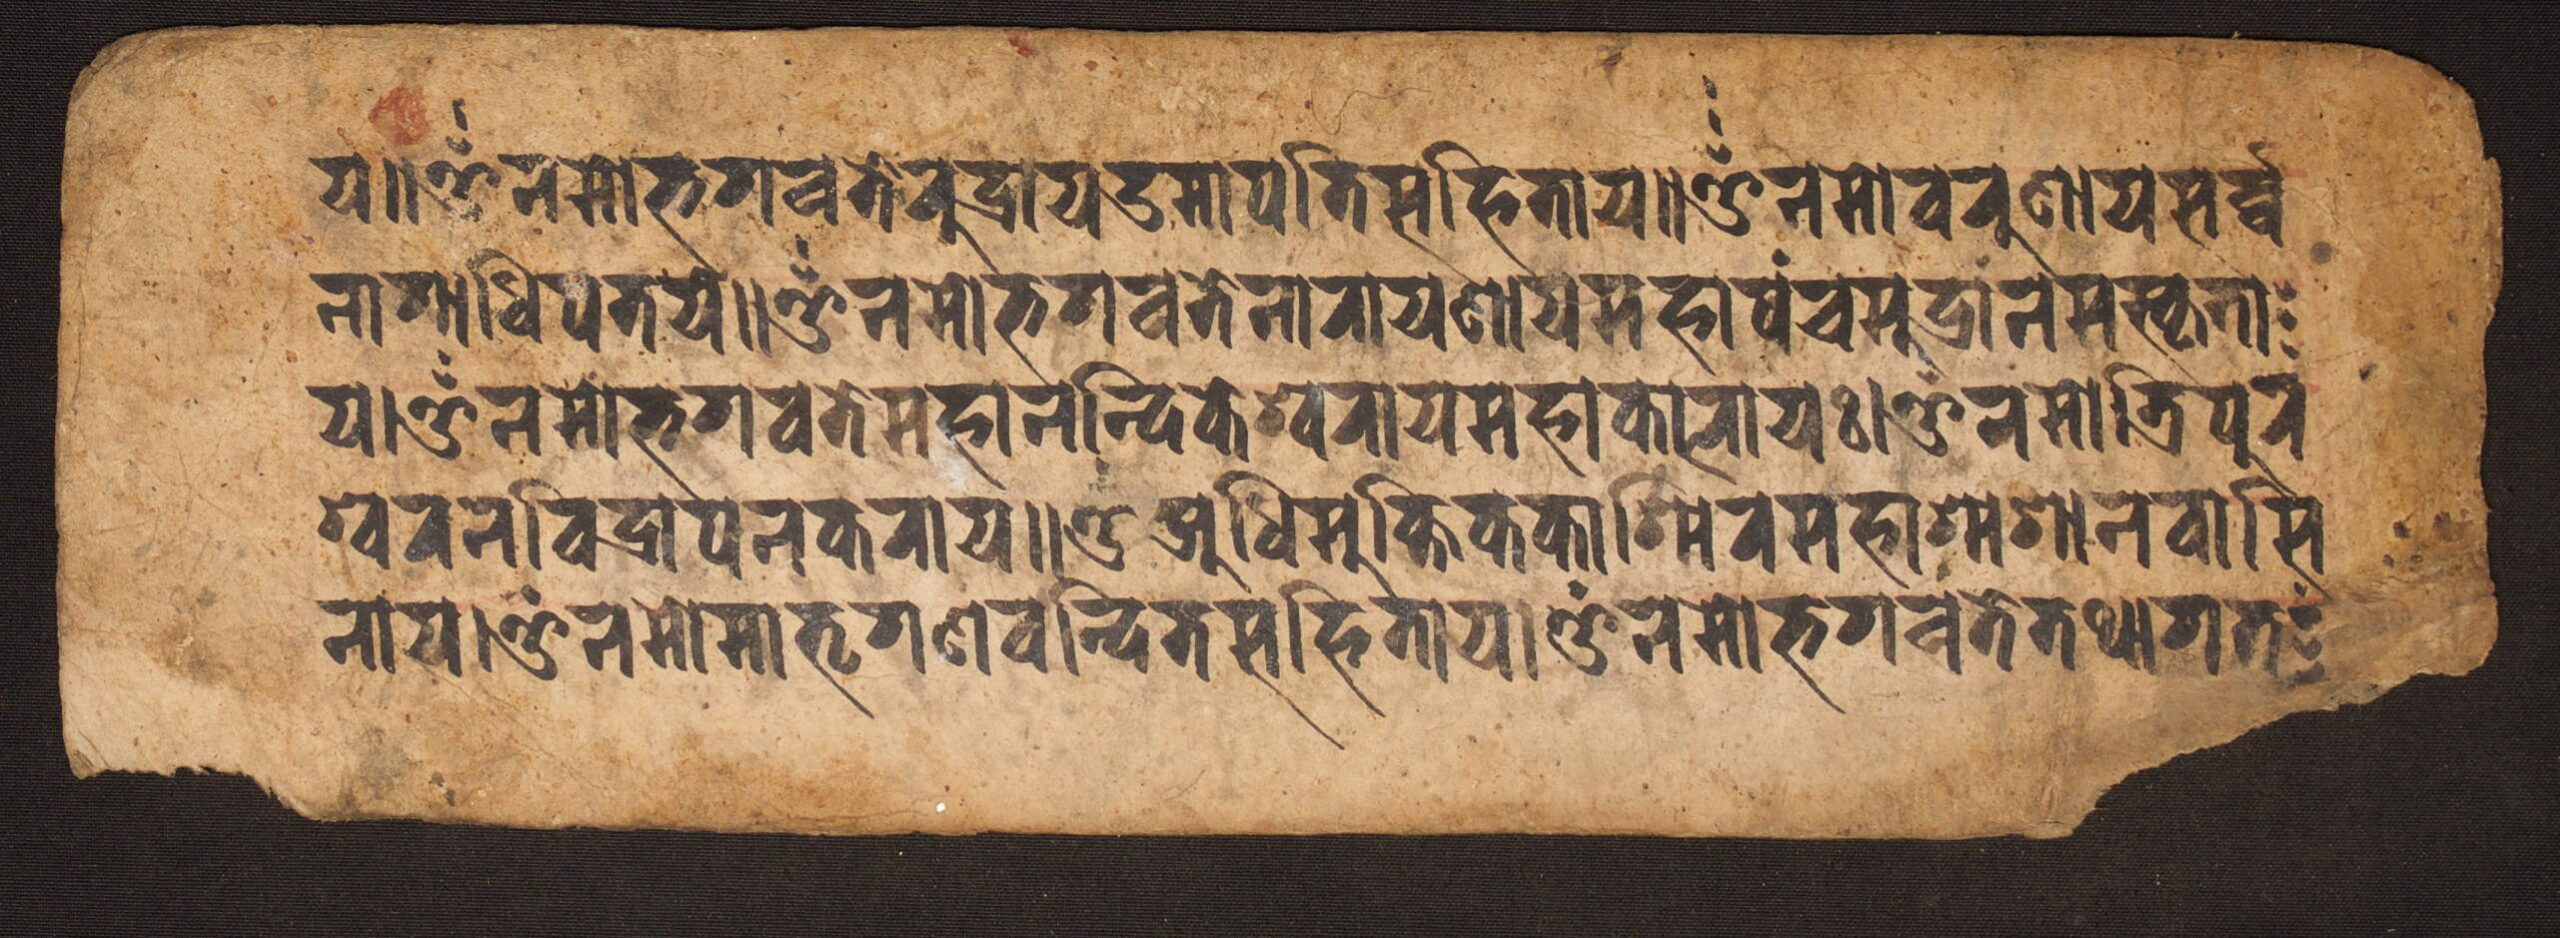 य॥ॐनमोभगवतेरुद्रायउमापतिसहिताय॥ॐनमोवरुणायसर्व्व
नागाधिपतये॥ॐनमोभगवतेनारायणायमहापंचमुद्रांनमस्कृता
य।ॐनमोभगवतेमहानन्दिकेश्वरायमहाकालायः।ॐनमोत्रिपुर
श्वरनविद्रापनकराय॥ॐअधिमुक्तिककाश्मिरमहाश्मशानवासि
नाय।ॐनमोमातृगणवन्दितसहिताय।ॐनमोभगवंतेतथागत